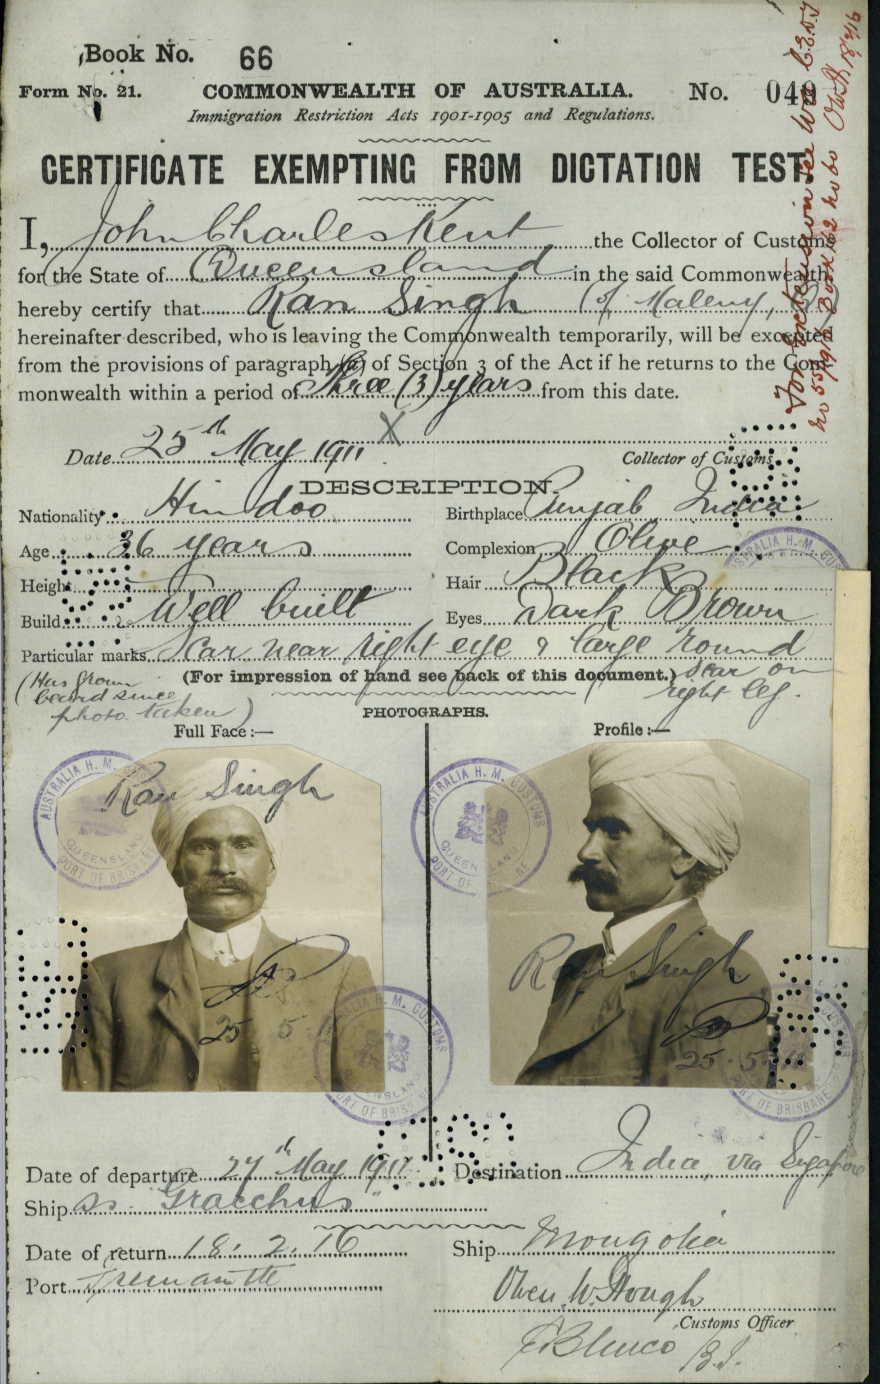 Book No. 66
Form No. 21. COMMONWEALTH OF AUSTRALIA. No. 040
Immigration Restriction Acts 1901-1905 and Regulations.
CERTIFICATE EXEMPTING FROM DICTATION TEST.
I, John Charles Kent the Collector of Customs
for the State of Queensland in the said Commonwealth
hereby certify that Ran Singh (of Maleny, Q)
hereinafter described, who is leaving the Commonwealth temporarily, will be excepted
from the provisions of paragraph (a) of Section 3 of the Act if he returns to the Com-
monwealth within a period of Three (3) years from this date.
Date 25th May 1911 X
Collector of Customs.
DESCRIPTION.
Nationality Hindoo Birthplace Punjab India
Age 36 years Complexion Olive
Height Hair Black
Build Well built Eyes Dark Brown
Particular marks Scar near right eye & large round
(Has grown beard since photo taken) (For impression of hand see back of this document.) scar on right leg.
PHOTOGRAPHS.
Full Face:— Profile:—
Ran Singh
25 5
Ran Singh
25.5.11
AUSTRALIA H. M. CUSTOMS
QUEENSLAND
PORT OF BRISBANE
Date of departure 27th May 1911 Destination India via Sigapore
Ship ss "Gracchus"
Date of return 18.2.16 Ship Mongolia
Port Fremantle
Owen W. Hough
Customs Officer
For extension see